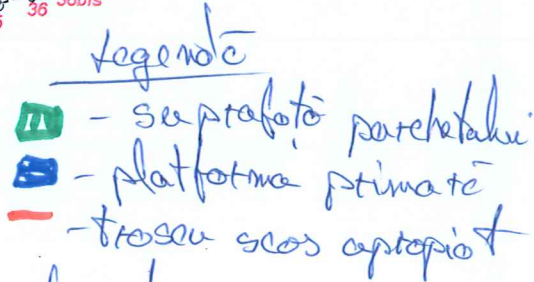 36
Legendă
- suprafață parchetului
- platforma primară
- traseu scos apropiat